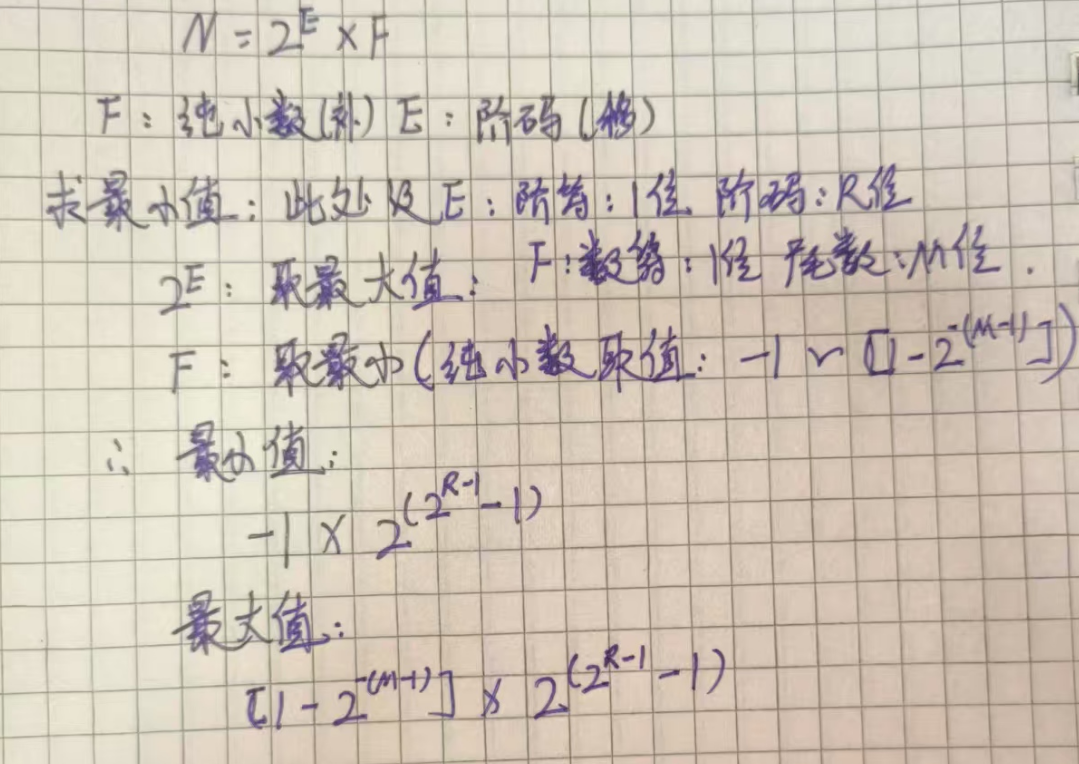 N = 2^E × F
F：纯小数(补) E：阶码(移)
求最小值：此处设E：阶符：1位 阶码：R位
2^E：取最大值： F：数符：1位 尾数：M位.
F：取最小(纯小数取值：-1 ~ [1-2^-(M-1)])
∴ 最小值：
-1 × 2^(2^R-1 -1)
最大值：
[1-2^-(M-1)] × 2^(2^R-1 -1)